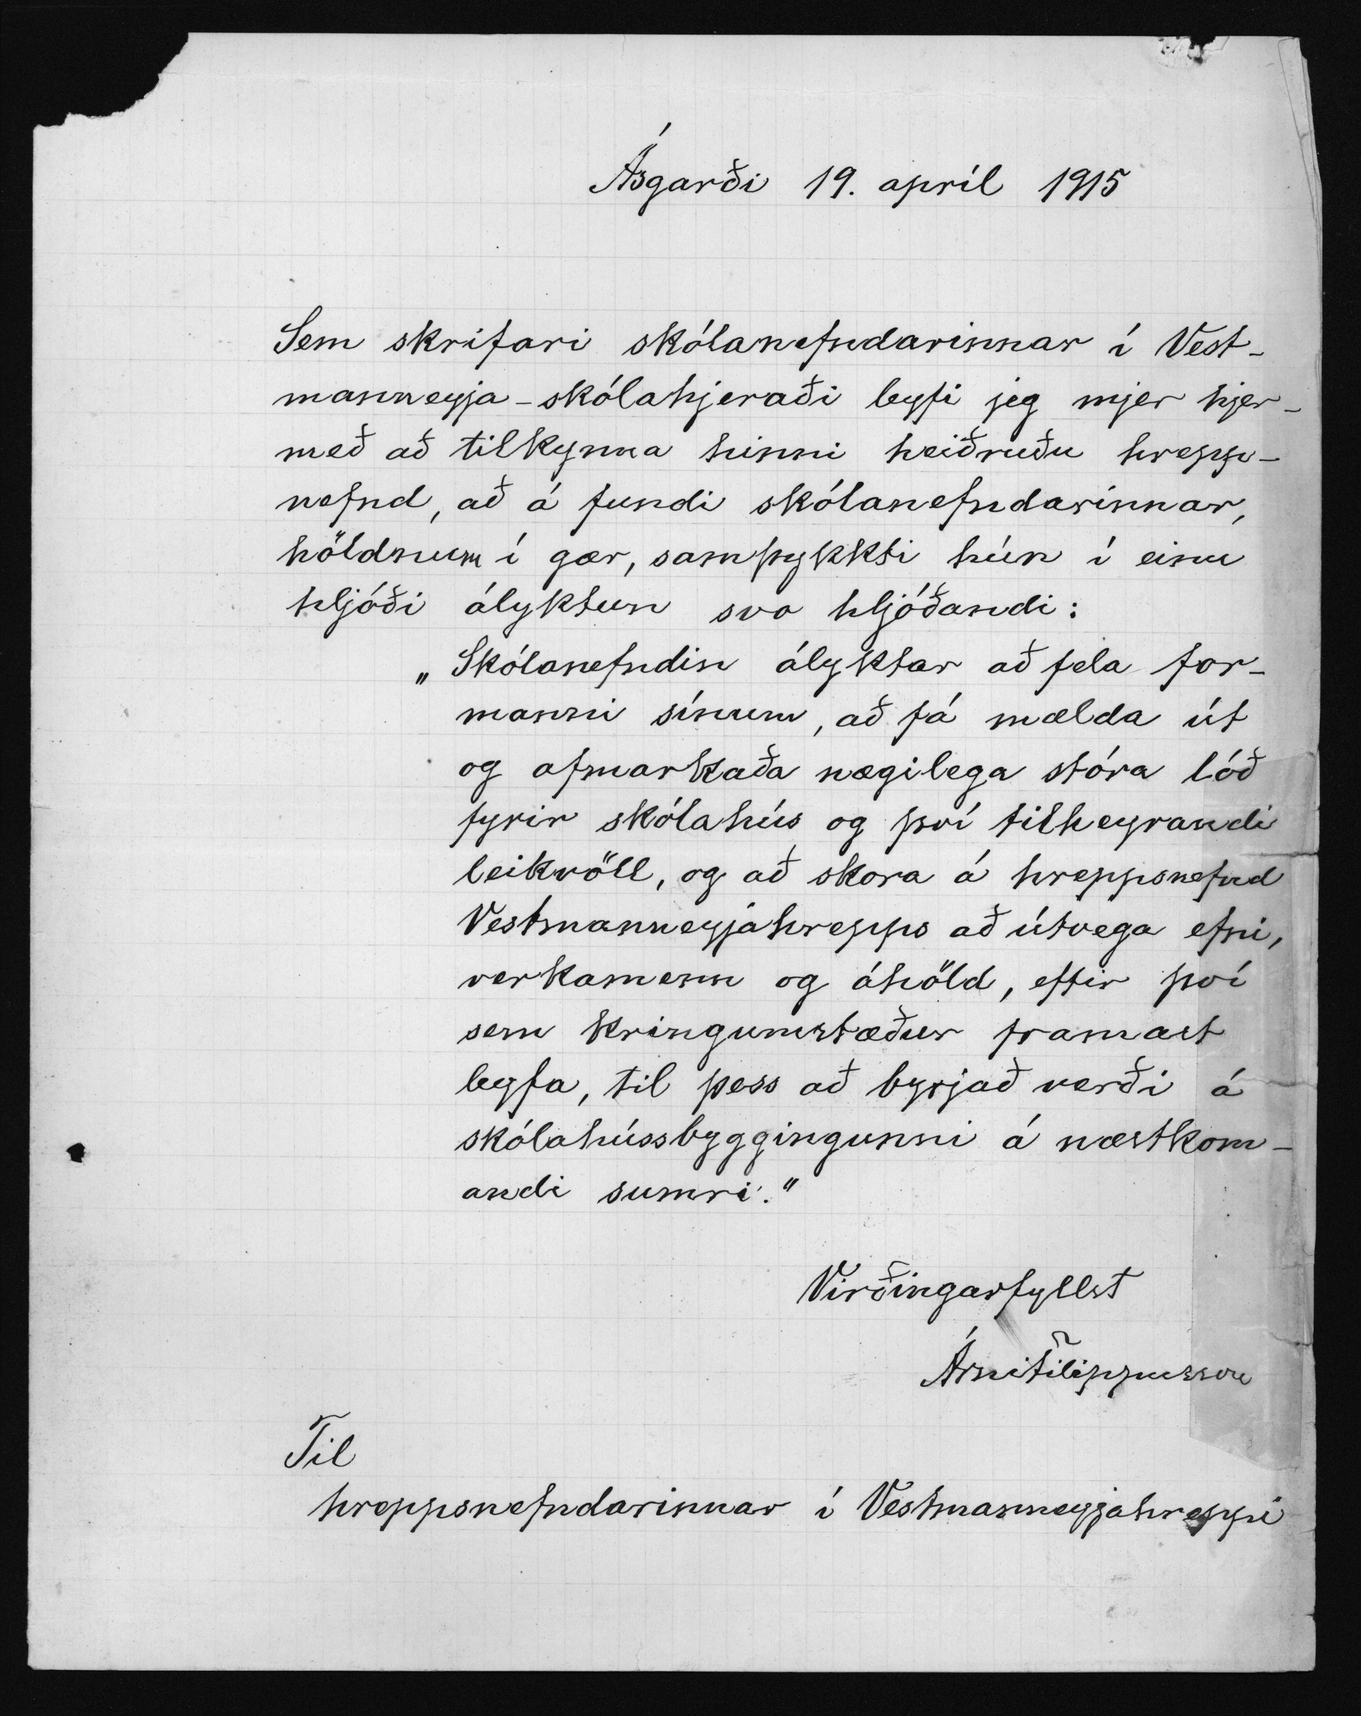 Ásgarði 19. apríl 1915
Sem skrifari skólanefndarinnar í Vest-
manneyja-skólahjeraði leyfi jeg mjer hjer-
með að tilkynna hinni heiðruðu hrepp-
nefnd, að á fundi skólanefndarinnar,
höldnum í gær, samþykkti hún í einu
hljóði ályktun svo hljóðandi:
„Skólanefndin ályktar að fela for-
manni sínum, að fá mælda út
og afmarkaða nægilega stóra lóð
fyrir skólahús og því tilheyrandi
leikvöll, og að skora á hreppsnefnd
Vestmanneyjahrepps að útvega efni,
verkamenn og áhöld, eftir því
sem kringumstæður framast
leyfa, til þess að byrjað verði á
skólahússbyggingunni á næstkom-
andi sumri."
Virðingarfyllst
Árni Filippusson
Til
hreppsnefndarinnar í Vestmanneyjahreppi